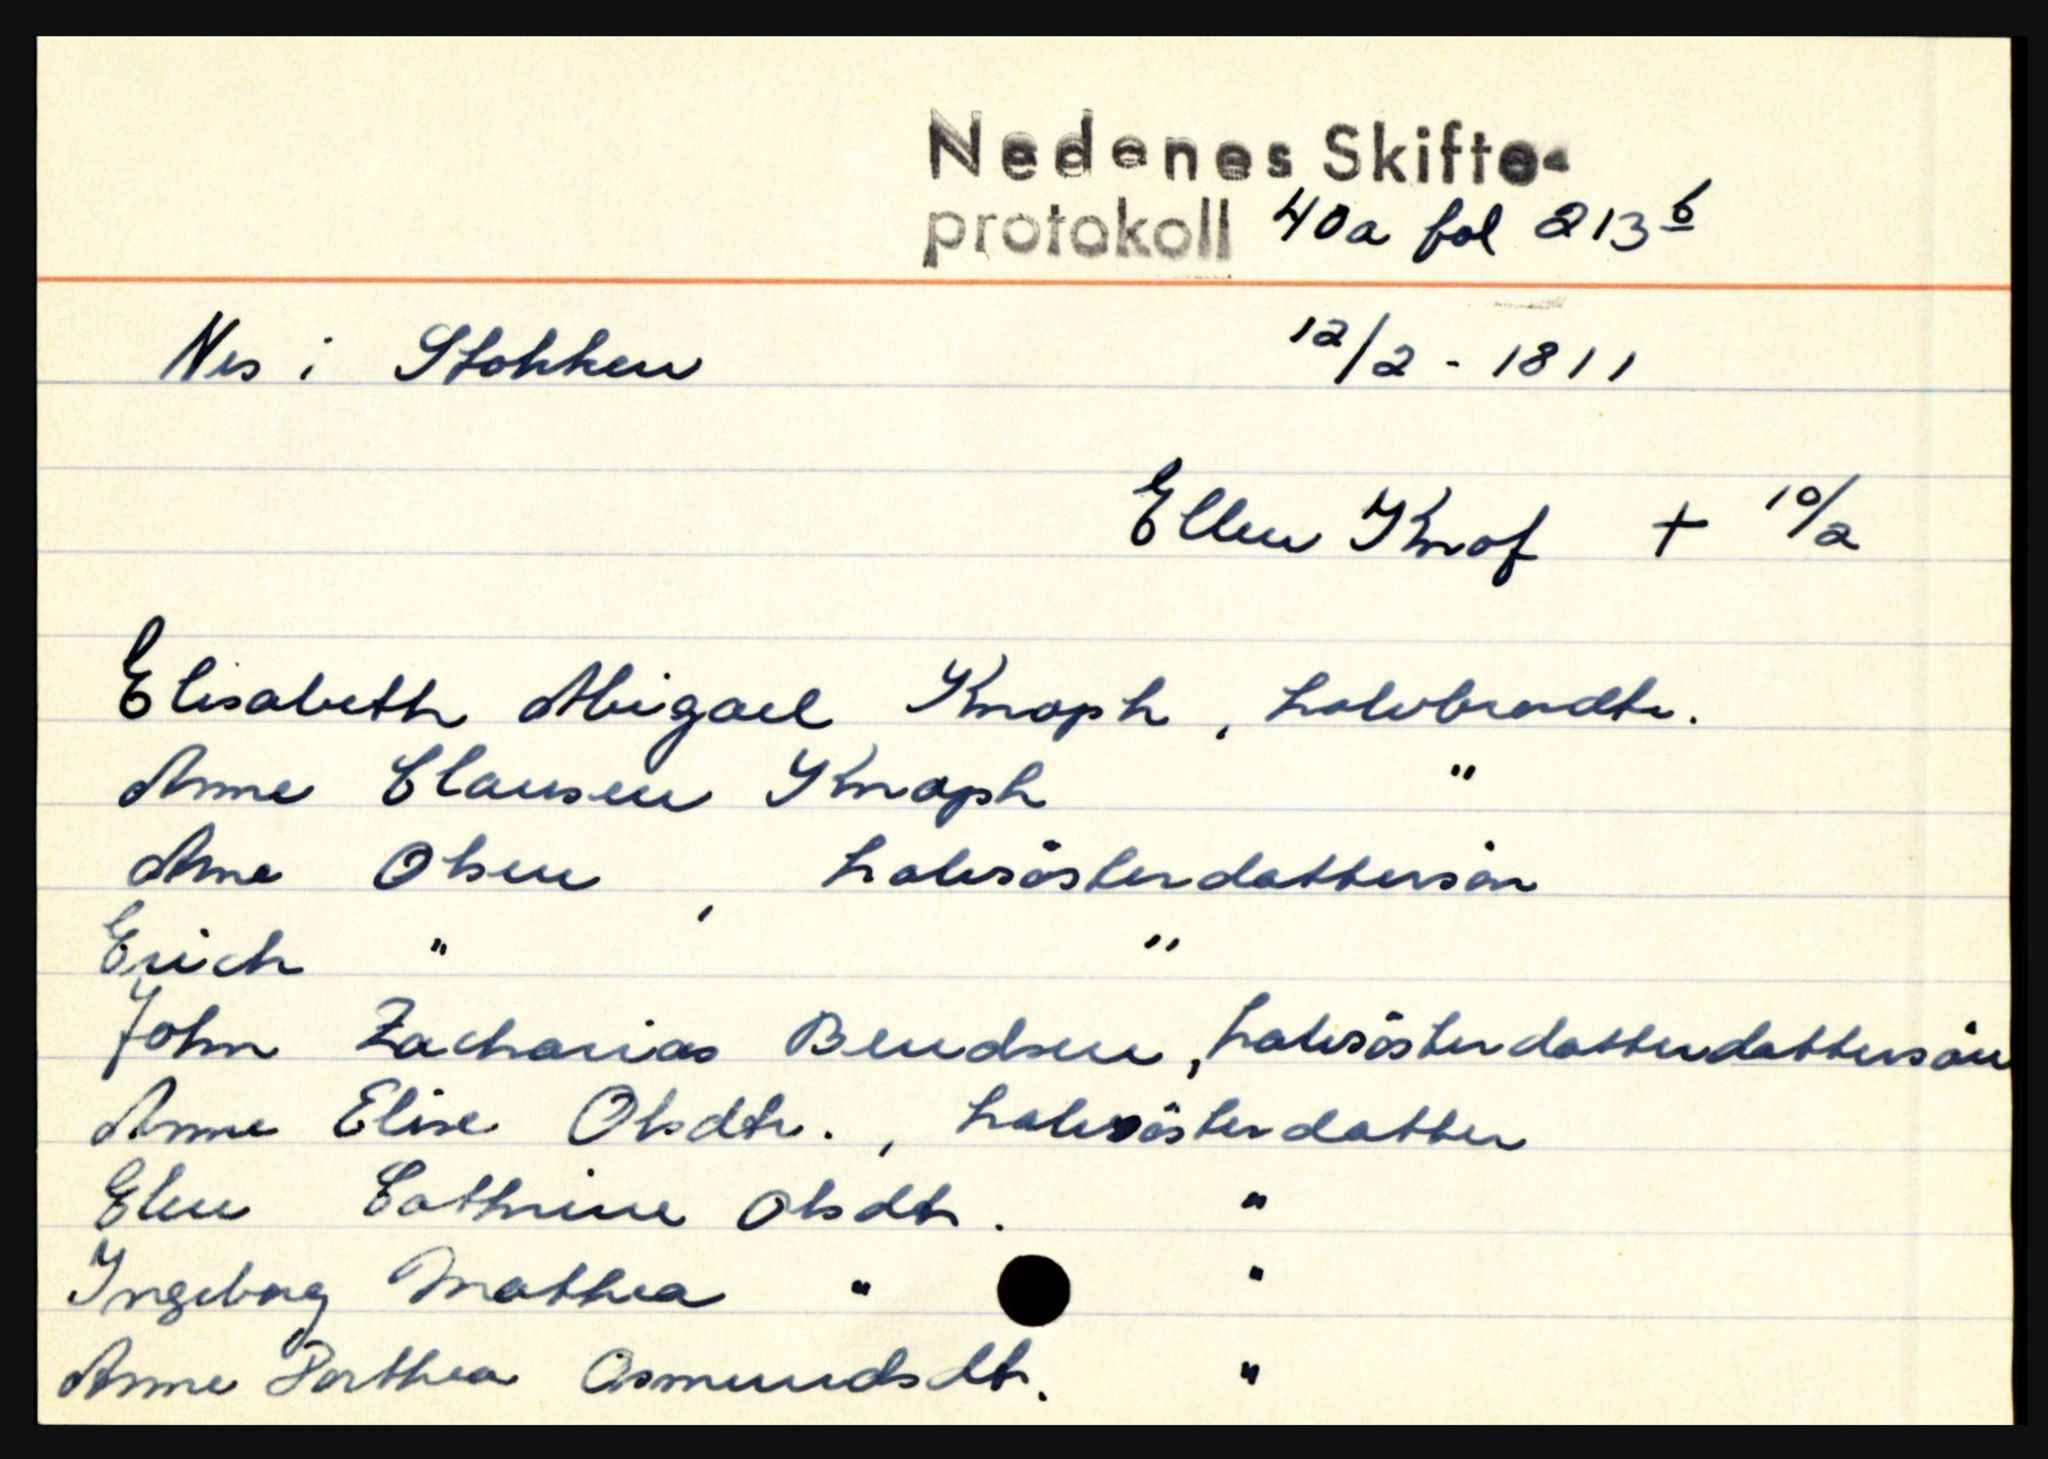 Nedenes Skifte-
protokoll 40a fol 213 b
Nes i Stokken 12/2 - 1811
Ellen Knof + 10/2
Elisabeth Abigael Knoph, halvbrordtr.
Anne Clausen Knoph "
Arne Olsen, halvsösterdattersön
Erich " "
John Zacharias Bendsen, halvsösterdatterdattersön
Anne Elise Olsdtr., halvsösterdatter
Elen Cathrine Olsdtr. "
Ingeborg Mathea " "
Anne Dorthea Osmundsdtr. "